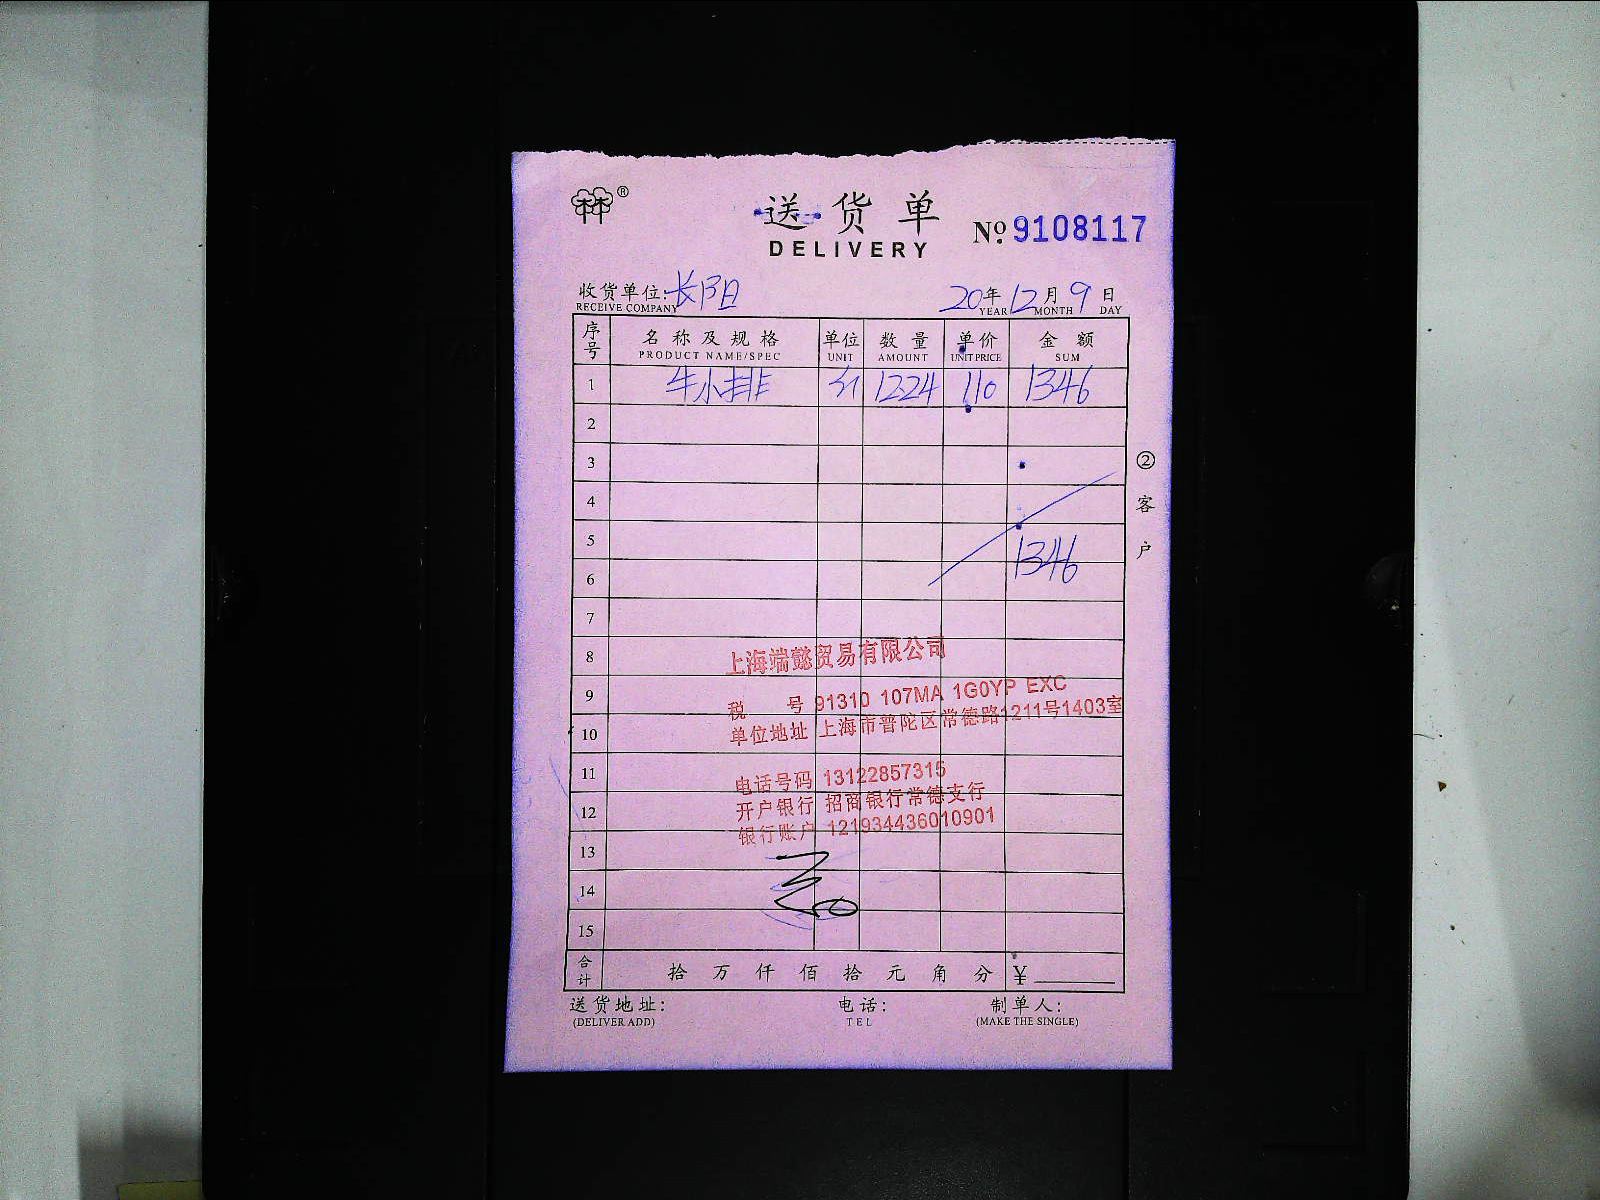 林®
送货单
DELIVERY
No. 9108117
收货单位: 长阳
RECEIVE COMPANY
20年12月9日
YEAR MONTH DAY
序号 名称及规格 单位 数量 单价 金额
PRODUCT NAME/SPEC UNIT AMOUNT UNIT PRICE SUM
1 牛小排 1224 110 1346
2
3
4
5 1346
6
7
8
9
10
11
12
13
14
15
上海端懿贸易有限公司
税 号 91310 107MA 1G0YP EXC
单位地址 上海市普陀区常德路1211号1403室
电话号码 13122857315
开户银行 招商银行常德支行
银行账户 121934436010901
合计 拾 万 仟 佰 拾 元 角 分 ¥
送货地址: 电话: 制单人:
(DELIVER ADD) TEL (MAKE THE SINGLE)
②客户